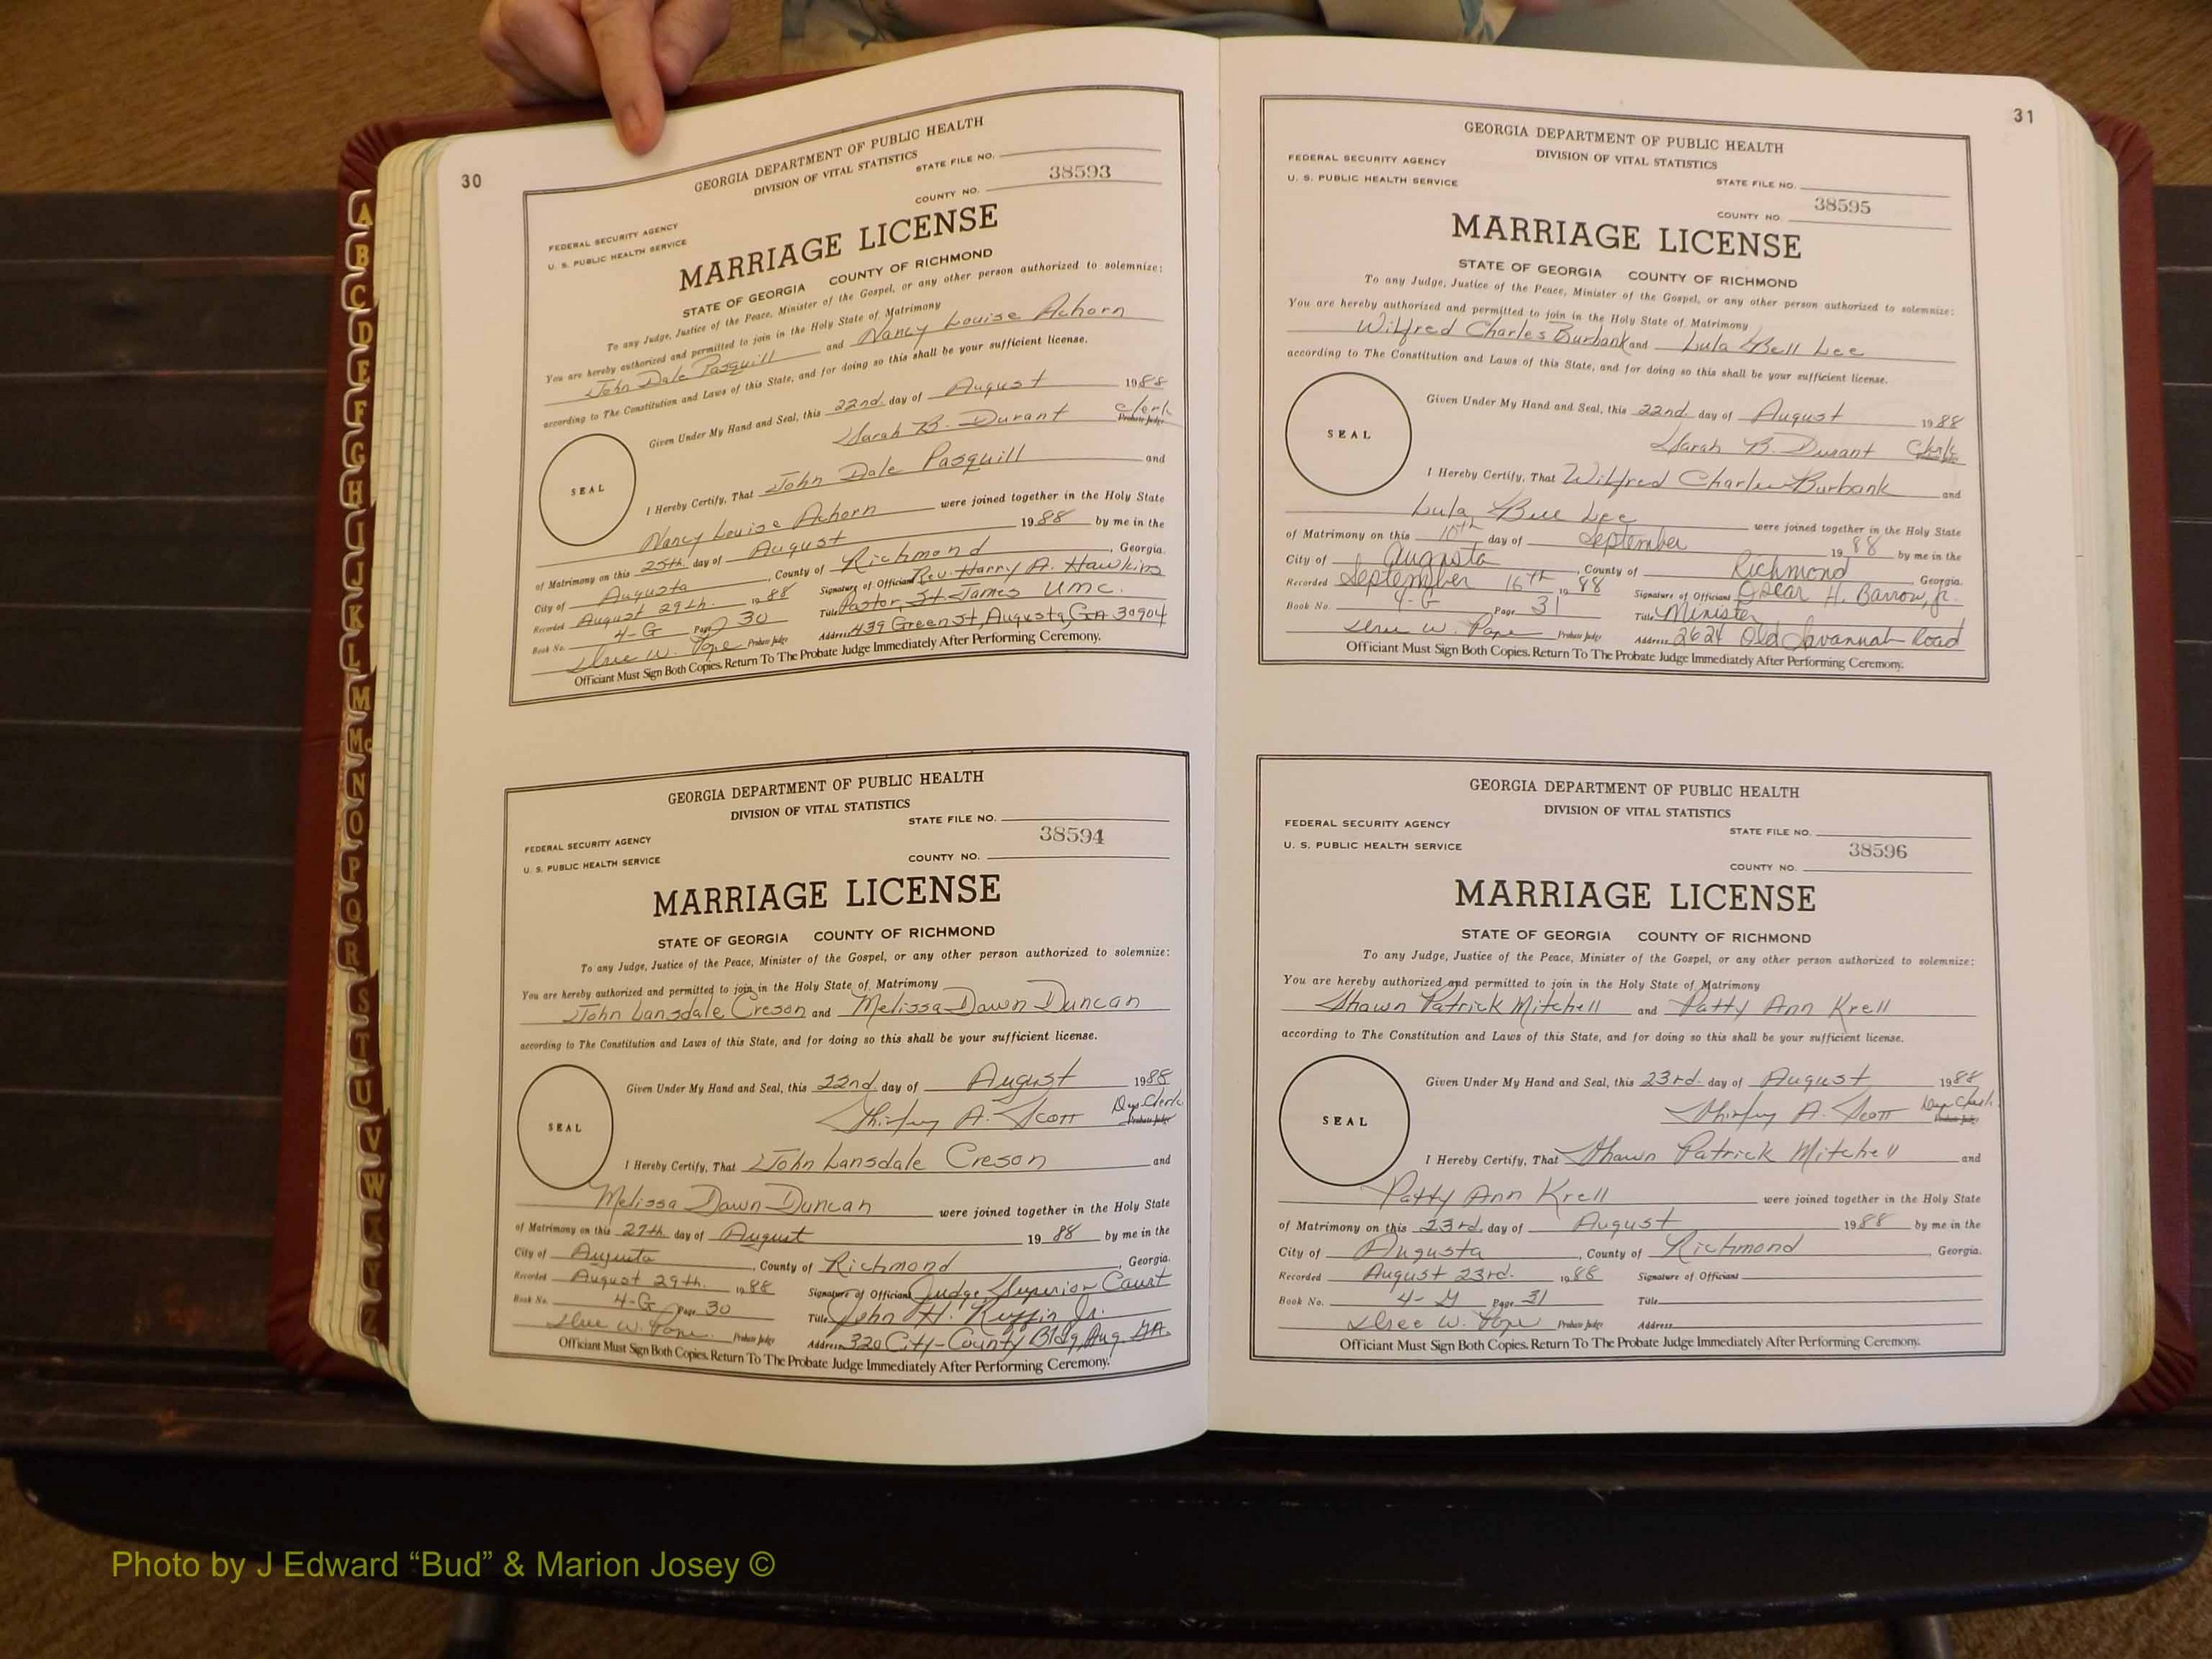 30
GEORGIA DEPARTMENT OF PUBLIC HEALTH
DIVISION OF VITAL STATISTICS
STATE FILE NO.
38593
COUNTY NO.
FEDERAL SECURITY AGENCY
U. S. PUBLIC HEALTH SERVICE
MARRIAGE LICENSE
STATE OF GEORGIA COUNTY OF RICHMOND
To any Judge, Justice of the Peace, Minister of the Gospel, or any other person authorized to solemnize:
You are hereby authorized and permitted to join in the Holy State of Matrimony
John Dale Pasquill and Nancy Louise Achorn
according to The Constitution and Laws of this State, and for doing so this shall be your sufficient license.
Given Under My Hand and Seal, this 22nd. day of August 1988
Sarah B. Durant Clerk
Probate Judge
SEAL
I Hereby Certify, That John Dale Pasquill and
Nancy Louise Achorn were joined together in the Holy State
of Matrimony on this 25th. day of August 1988 by me in the
City of Augusta, County of Richmond, Georgia.
Recorded August 29th. 1988 Signature of Officiant Rev. Harry A. Hawkins
Book No. 4-G Page 30 Title Pastor, St. James UMC.
W. Pope Probate Judge Address 439 Green St, Augusta, GA 30904
Officiant Must Sign Both Copies. Return To The Probate Judge Immediately After Performing Ceremony.
GEORGIA DEPARTMENT OF PUBLIC HEALTH
DIVISION OF VITAL STATISTICS
STATE FILE NO.
38594
FEDERAL SECURITY AGENCY
COUNTY NO.
U. S. PUBLIC HEALTH SERVICE
MARRIAGE LICENSE
STATE OF GEORGIA COUNTY OF RICHMOND
To any Judge, Justice of the Peace, Minister of the Gospel, or any other person authorized to solemnize:
You are hereby authorized and permitted to join in the Holy State of Matrimony
John Lansdale Creson and Melissa Dawn Duncan
according to The Constitution and Laws of this State, and for doing so this shall be your sufficient license.
Given Under My Hand and Seal, this 22nd. day of August 1988
Shirley A. Scott Dep. Clerk
Probate Judge
SEAL
I Hereby Certify, That John Lansdale Creson and
Melissa Dawn Duncan were joined together in the Holy State
of Matrimony on this 27th. day of August 1988 by me in the
City of Augusta, County of Richmond, Georgia.
Recorded August 29th. 1988 Signature of Officiant Judge, Superior Court
Book No. 4-G Page 30 Title John H. Ruffin Jr.
W. Pope Probate Judge Address 320 City-County Bldg, Aug. GA.
Officiant Must Sign Both Copies. Return To The Probate Judge Immediately After Performing Ceremony.
31
GEORGIA DEPARTMENT OF PUBLIC HEALTH
DIVISION OF VITAL STATISTICS
FEDERAL SECURITY AGENCY
U. S. PUBLIC HEALTH SERVICE
STATE FILE NO.
38595
COUNTY NO.
MARRIAGE LICENSE
STATE OF GEORGIA COUNTY OF RICHMOND
To any Judge, Justice of the Peace, Minister of the Gospel, or any other person authorized to solemnize:
You are hereby authorized and permitted to join in the Holy State of Matrimony
Wilfred Charles Burbank and Lula Bell Lee
according to The Constitution and Laws of this State, and for doing so this shall be your sufficient license.
Given Under My Hand and Seal, this 22nd. day of August 1988
Sarah B. Durant Clerk
SEAL
I Hereby Certify, That Wilfred Charles Burbank and
Lula Bell Lee were joined together in the Holy State
of Matrimony on this 10th day of September 1988 by me in the
City of Augusta, County of Richmond, Georgia.
Recorded September 16th 1988 Signature of Officiant Oscar H. Barrow, Jr.
Book No. 4-G Page 31 Title Minister
W. Pope Probate Judge Address 2624 Old Savannah Road
Officiant Must Sign Both Copies. Return To The Probate Judge Immediately After Performing Ceremony.
GEORGIA DEPARTMENT OF PUBLIC HEALTH
DIVISION OF VITAL STATISTICS
FEDERAL SECURITY AGENCY
STATE FILE NO.
U. S. PUBLIC HEALTH SERVICE
38596
COUNTY NO.
MARRIAGE LICENSE
STATE OF GEORGIA COUNTY OF RICHMOND
To any Judge, Justice of the Peace, Minister of the Gospel, or any other person authorized to solemnize:
You are hereby authorized and permitted to join in the Holy State of Matrimony
Shawn Patrick Mitchell and Patty Ann Krell
according to The Constitution and Laws of this State, and for doing so this shall be your sufficient license.
Given Under My Hand and Seal, this 23rd. day of August 1988
Shirley A. Scott Dep Clerk
Probate Judge
SEAL
I Hereby Certify, That Shawn Patrick Mitchell and
Patty Ann Krell were joined together in the Holy State
of Matrimony on this 23rd. day of August 1988 by me in the
City of Augusta, County of Richmond, Georgia.
Recorded August 23rd. 1988 Signature of Officiant
Book No. 4-G Page 31 Title
W. Pope Probate Judge Address
Officiant Must Sign Both Copies. Return To The Probate Judge Immediately After Performing Ceremony.
A
B
C
D
E
F
G
H
I
J
K
L
M
Mc
N
O
P
Q
R
S
T
U
V
W
Z
Photo by J Edward “Bud” & Marion Josey ©